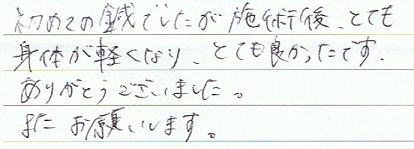 初めての鍼でしたが施術後、とても
身体が軽くなり、とても良かったです.
ありがとうございました。
またお願いします。